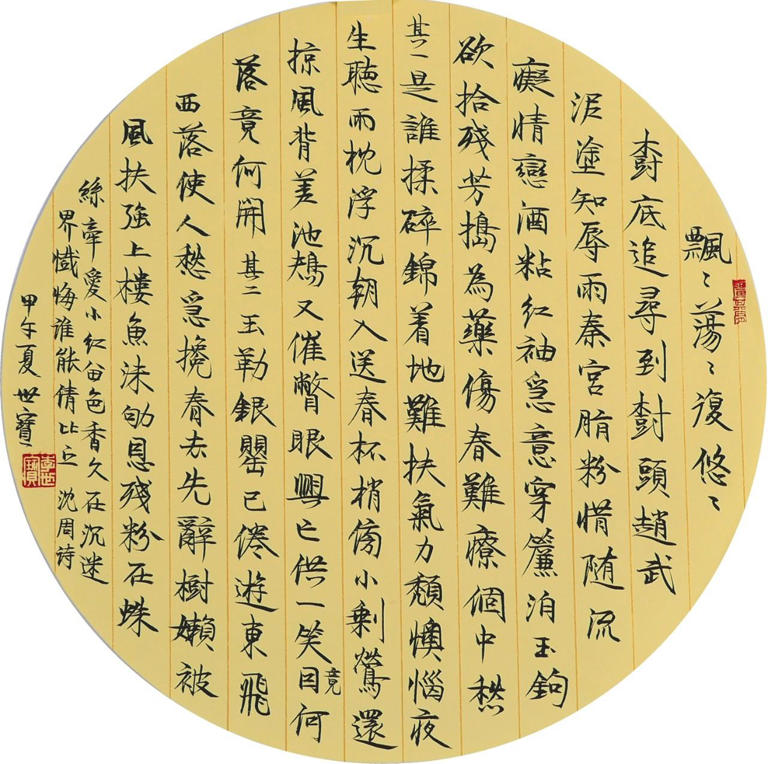 飄〻蕩〻復悠〻
樹底追尋到樹頭趙武
泥塗知辱雨秦宮脂粉惜随流
癡情戀酒粘紅袖急意穿簾泊玉鉤
欲拾殘芳搗為藥傷春難療個中愁
其一是誰揉碎錦着地難扶氣力頹懊惱夜
生聽雨枕浮沉朝入送春杯梢傍小剩鶯還
掠風背差池鳦又催瞥眼興亡供一笑竟因何
落竟何開其二玉勒銀罌已倦遊東飛
西落使人愁急攙春去先辭樹嬾被
風扶強上樓魚沫劬恩殘粉在蛛
絲牽愛小紅留色香久在沉迷
界懺悔谁能倩比丘 沈周诗
甲午夏 世寶